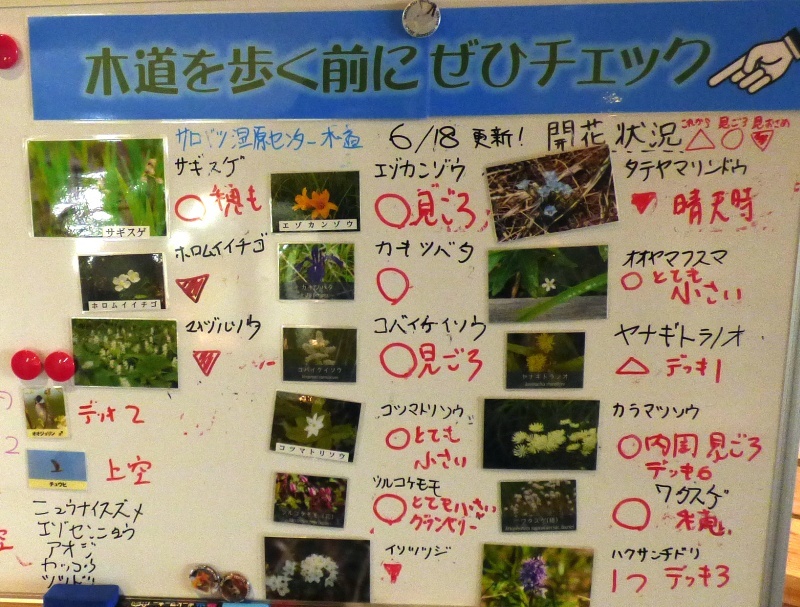 木道を歩く前にぜひチェック
サロベツ湿原センター木道 6/18 更新! 開花状況 これから△ 見ごろ○ 見おさめ▽
サギスゲ
サギスゲ
○穂も
ホロムイイチゴ
ホロムイイチゴ
▽
マイヅルソウ
▽
オオジュリン♂
デッキ2
チュウヒ
上空
ニュウナイスズメ
エゾセンニュウ
アオジ
カッコウ
ツツドリ
エゾカンゾウ
エゾカンゾウ
○見ごろ
カキツバタ
カキツバタ
○
コバイケイソウ
コバイケイソウ
○見ごろ
コツマトリソウ
コツマトリソウ
○とても
小さい
ツルコケモモ
○とても小さい
クランベリー
イソツツジ
▼
タテヤマリンドウ
▼ 晴天時
オオヤマフスマ
○とても
小さい
ヤナギトラノオ
ヤナギトラノオ
△ デッキ1
カラマツソウ
○内周 見ごろ
デッキ6
ワタスゲ
○
ハクサンチドリ
1つ デッキ3